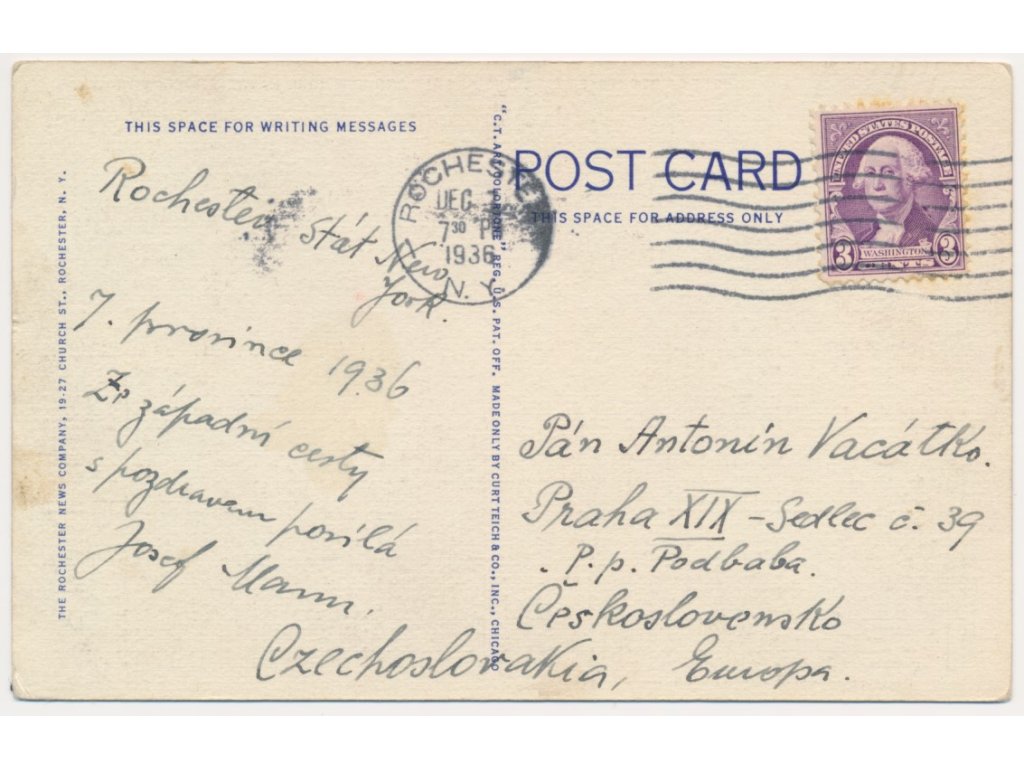 THIS SPACE FOR WRITING MESSAGES
Rochester
stát New
York.
7. prosince 1936
Ze západní cesty
s pozdravem posílá
Josef Mann.
THE ROCHESTER NEWS COMPANY, 19-27 CHURCH ST., ROCHESTER, N. Y.
"C.T. ART-COLORTONE" REG. U.S. PAT. OFF. MADE ONLY BY CURT TEICH & CO., INC., CHICAGO
ROCHESTER
DEC
7 30 P
1936
N.Y.
POST CARD
THIS SPACE FOR ADDRESS ONLY
UNITED STATES POSTAGE
3 WASHINGTON 3
Pán Antonín Vacátko.
Praha XIX - Sedlec č. 39
P. p. Podbaba.
Československo
Czechoslovakia, Europa.